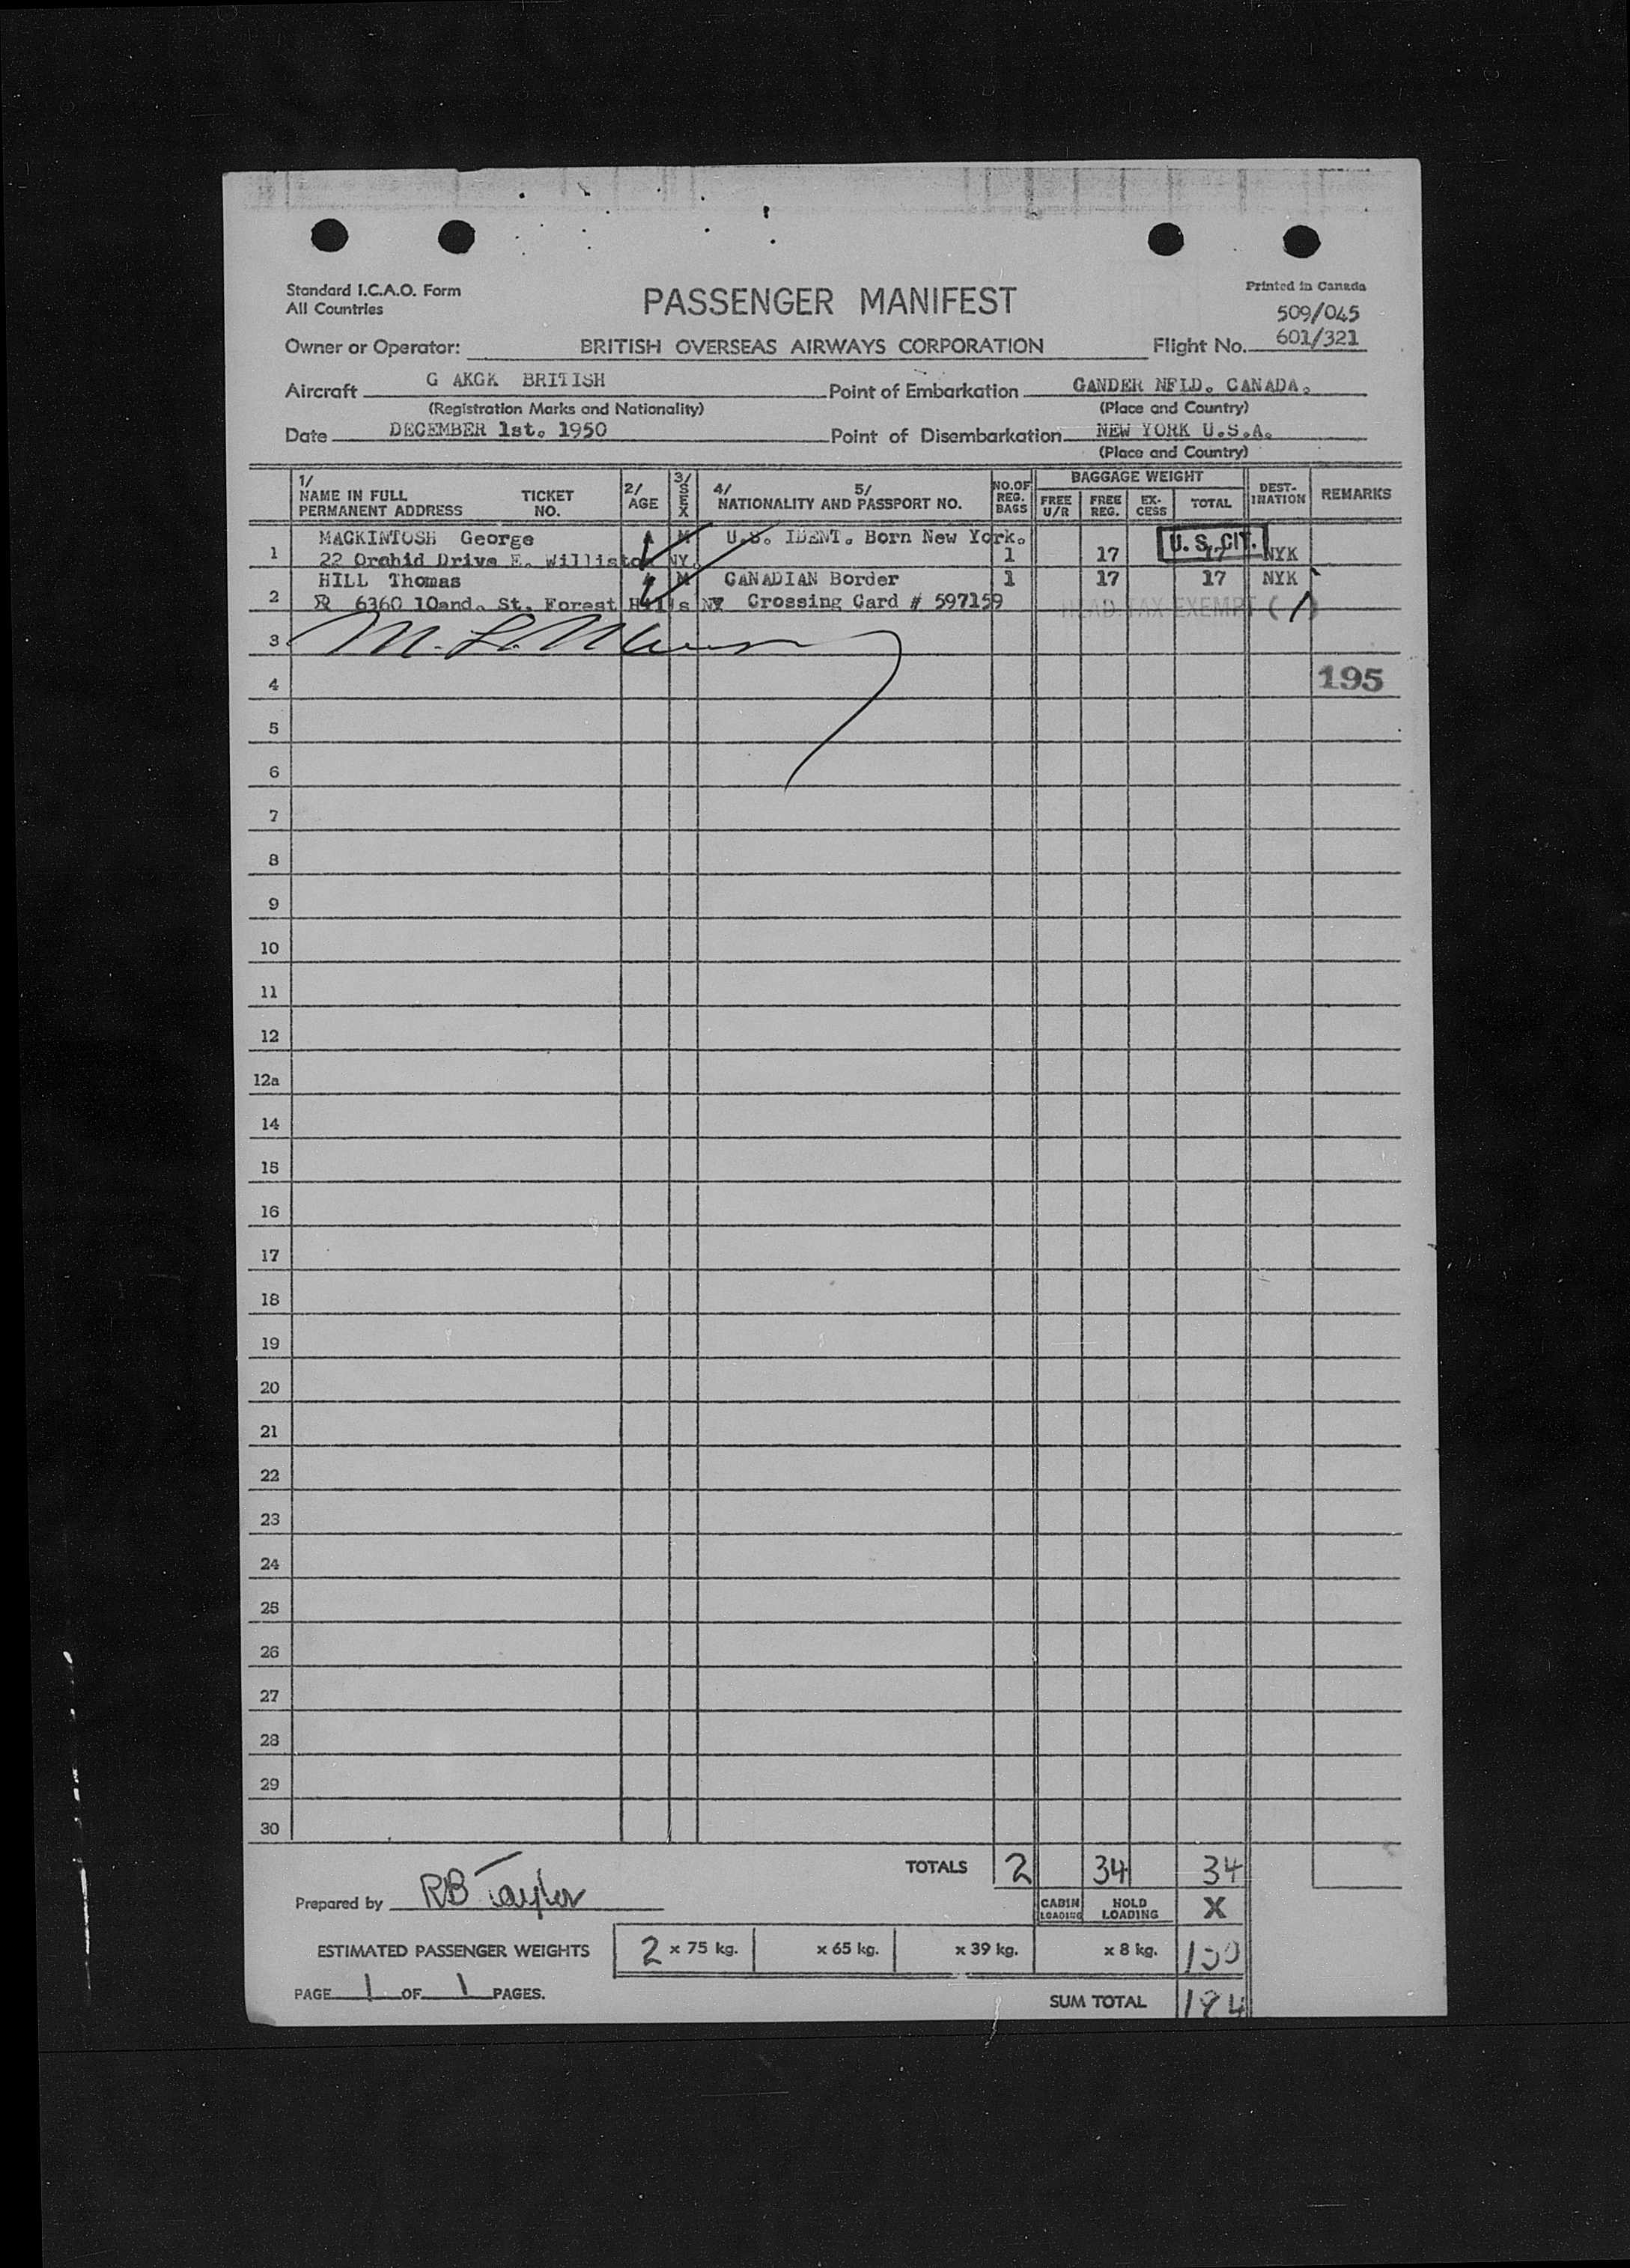 Standard I.C.A.O. Form
All Countries
PASSENGER MANIFEST
Printed in Canada
509/045
Owner or Operator: BRITISH OVERSEAS AIRWAYS CORPORATION Flight No. 601/321
Aircraft G AKGK BRITISH Point of Embarkation GANDER NFLD. CANADA.
(Registration Marks and Nationality) (Place and Country)
Date DECEMBER 1st. 1950 Point of Disembarkation NEW YORK U.S.A.
(Place and Country)
1/ NAME IN FULL PERMANENT ADDRESS TICKET NO. 2/ AGE 3/ SEX 4/ 5/ NATIONALITY AND PASSPORT NO. NO. OF REG. BAGS BAGGAGE WEIGHT FREE U/R FREE REG. EX-CESS TOTAL DEST-INATION REMARKS
MACKINTOSH George A M U.S. IDENT. Born New York.
1 22 Orchid Drive E. Williston NY. 1 17 U.S. CIT. 17 NYK
HILL Thomas M CANADIAN Border 1 17 17 NYK
2 6360 10and. St. Forest Hills NY Crossing Card # 597159 HEAD TAX EXEMPT ( / )
3
4 195
5
6
7
8
9
10
11
12
12a
14
15
16
17
18
19
20
21
22
23
24
25
26
27
28
29
30
TOTALS 2 34 34
Prepared by RB Taylor CABIN LOADING HOLD LOADING X
ESTIMATED PASSENGER WEIGHTS 2 x 75 kg. x 65 kg. x 39 kg. x 8 kg. 150
PAGE 1 OF 1 PAGES.
SUM TOTAL 184